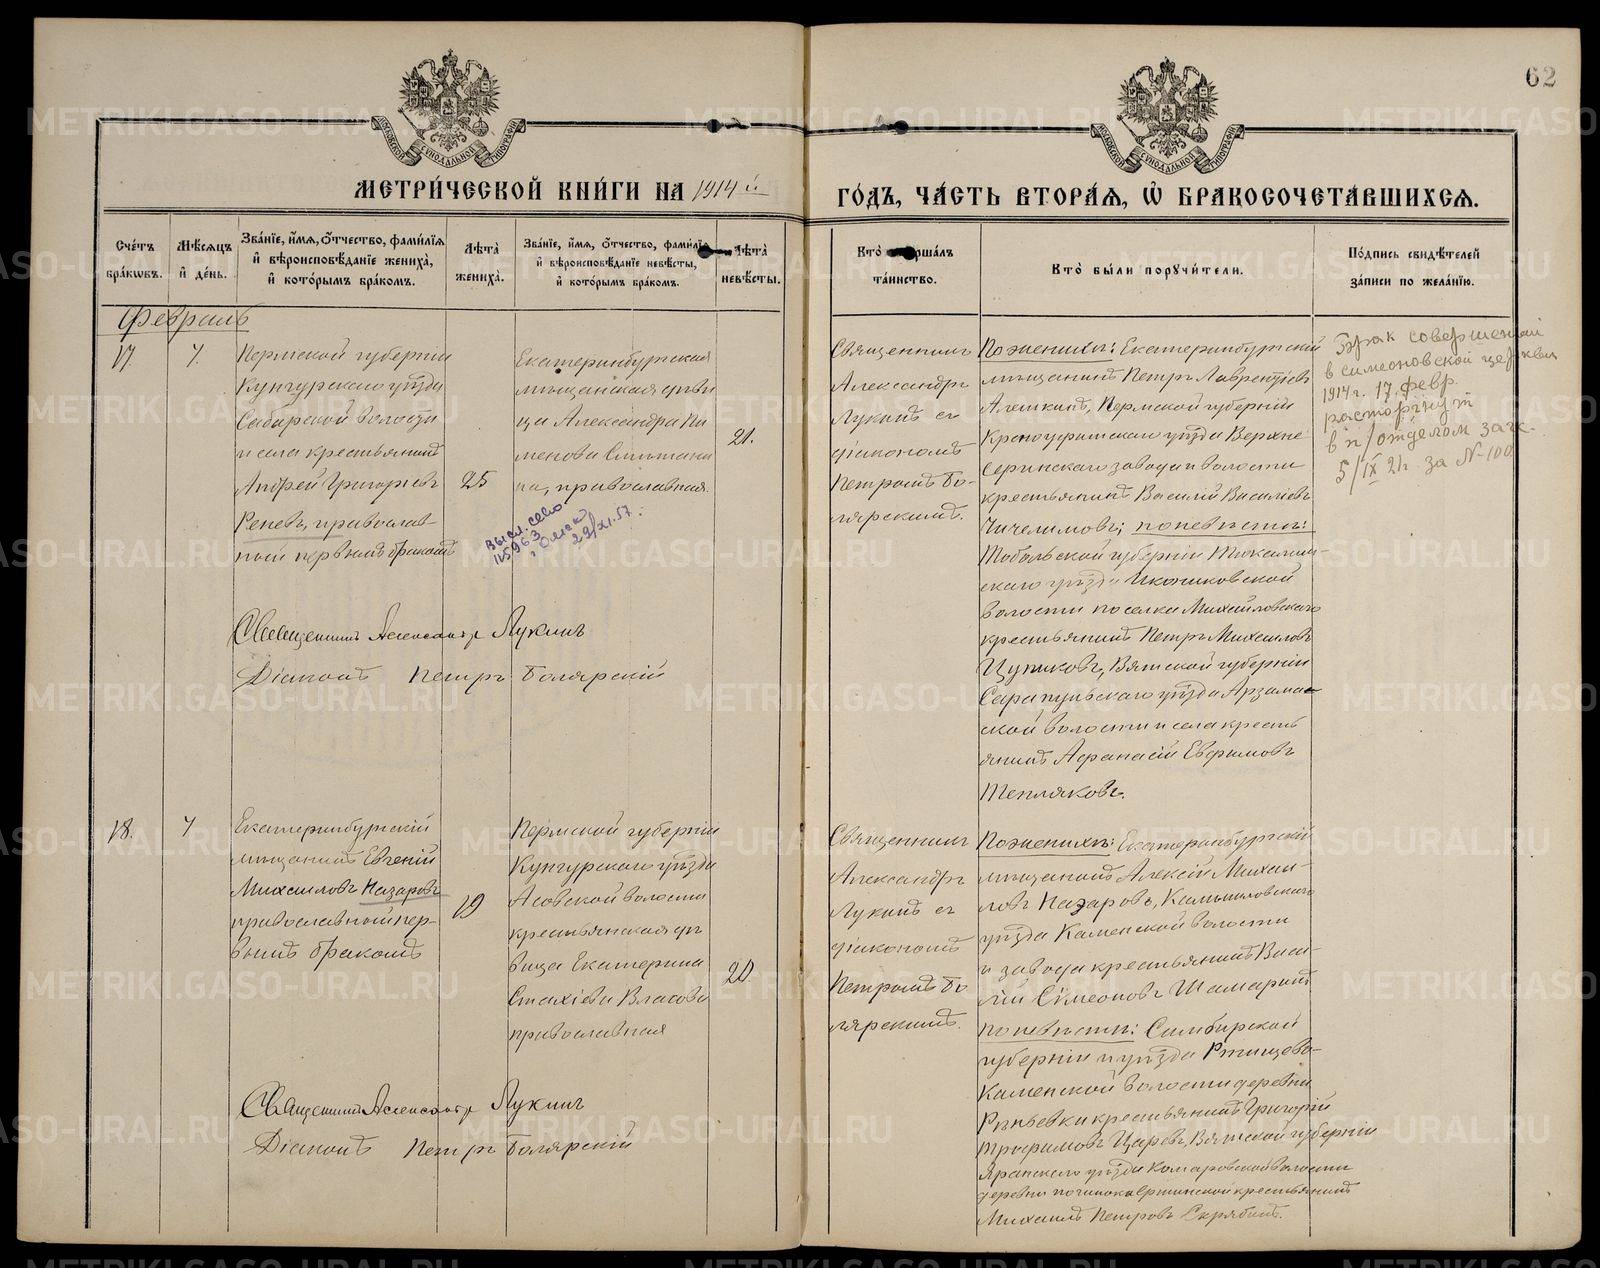 62
МОСКОВСКОЙ СѴНОДАЛЬНОЙ ТИПОГРАФІИ
МОСКОВСКОЙ СѴНОДАЛЬНОЙ ТИПОГРАФІИ
МЕТРИ́ЧЕСКОЙ КНИ́ГИ НА 1914 й
ГО́ДЪ, ЧА́СТЬ ВТОРА́Я, Ѽ БРАКОСОЧЕТА́ВШИХСЯ.
Сче́тъ бра́кѡвъ.
Мѣ́сяцъ и҆ де́нь.
Зва́нїе, и҆́мя, ѻ҆́тчество, фами́лїя и҆ вѣроисповѣ́данїе жениха̀, и҆ кото́рымъ бра́комъ.
Лѣ́та̀ жениха̀.
Зва́нїе, и҆́мя, ѻ҆́тчество, фами́лїя и҆ вѣроисповѣ́данїе невѣ́сты, и҆ кото́рымъ бра́комъ.
Лѣ́та̀ невѣ́сты.
Кто̀ соверша́лъ та́инство.
Кто̀ бы́ли порꙋчи́тели.
По́дпись свидѣ́телей за́писи по жела́нїю.
Февраль
17.
7.
Пермской губернiи
Кунгурскаго уѣзда
Сабарской волости
и села крестьянинъ
Андрей Григорьевъ
Репевъ, православ-
ный первымъ бракомъ
25
Екатеринбургская
мѣщанская дѣви
ца Александра Пи
менова
на, православная.
21.
высл. св-во
115963
г Омск
22/XI.57.
Священникъ
Александръ
Лукинъ съ
дiакономъ
Петромъ Бо-
лярскимъ.
По женихѣ: Екатеринбургскiй
мѣщанинъ Петръ Лаврентiевъ
Алешкинъ, Пермской губернiи
Красноуфимскаго уѣзда Верхне
Сергинскаго завода и волости
крестьянинъ Василiй Василiевъ
Чичелимовъ; по невѣстѣ:
Тобольской губернiи Тюкалин-
скаго уѣзда Иконниковской
волости поселка Михайловскаго
крестьянинъ Петръ Михаиловъ
Цупиковъ, Вятской губернiи
Сарапульскаго уѣзда Арзамас
ской волости и села кресть
янинъ Афанасiй Евфимовъ
Тепляковъ.
Брак совершенный
в симеоновской церкви
1914 г. 17 февр.
расторгнут
в п/отделом загс.
5/IX 21 г. за №100
Священникъ Александръ Лукинъ
Дiаконъ Петръ Болярскiй
18.
7
Екатеринбургскiй
мѣщанинъ Евгенiй
Михаиловъ Назаровъ
православный пер-
вымъ бракомъ
19
Пермской губернiи
Кунгурскаго уѣзда
Асовской волости
крестьянская дѣ
вица Екатерина
Стахiева Власова
православная
20.
Священникъ
Александръ
Лукинъ съ
дiакономъ
Петромъ Бо
лярскимъ.
По женихѣ: Екатеринбургскiй
мѣщанинъ Алексiй Михаи-
ловъ Назаровъ, Камышловскаго
уѣзда Каменской волости
и завода крестьянинъ Васи-
лiй Сiмеоновъ Шамаринъ
по невѣстѣ: Симбирской
губернiи и уѣзда Ртищево-
Каменской волости деревни
Репьевки крестьянинъ Григорiй
Трофимовъ Царевъ, Вятской губернiи
Яранскаго уѣзда Комаровской волости
деревни починока крестьянинъ
Михаилъ Петровъ Скрябинъ.
Священникъ Александръ Лукинъ
Дiаконъ Петръ Болярскiй
METRIKI.GASO-URAL.RU